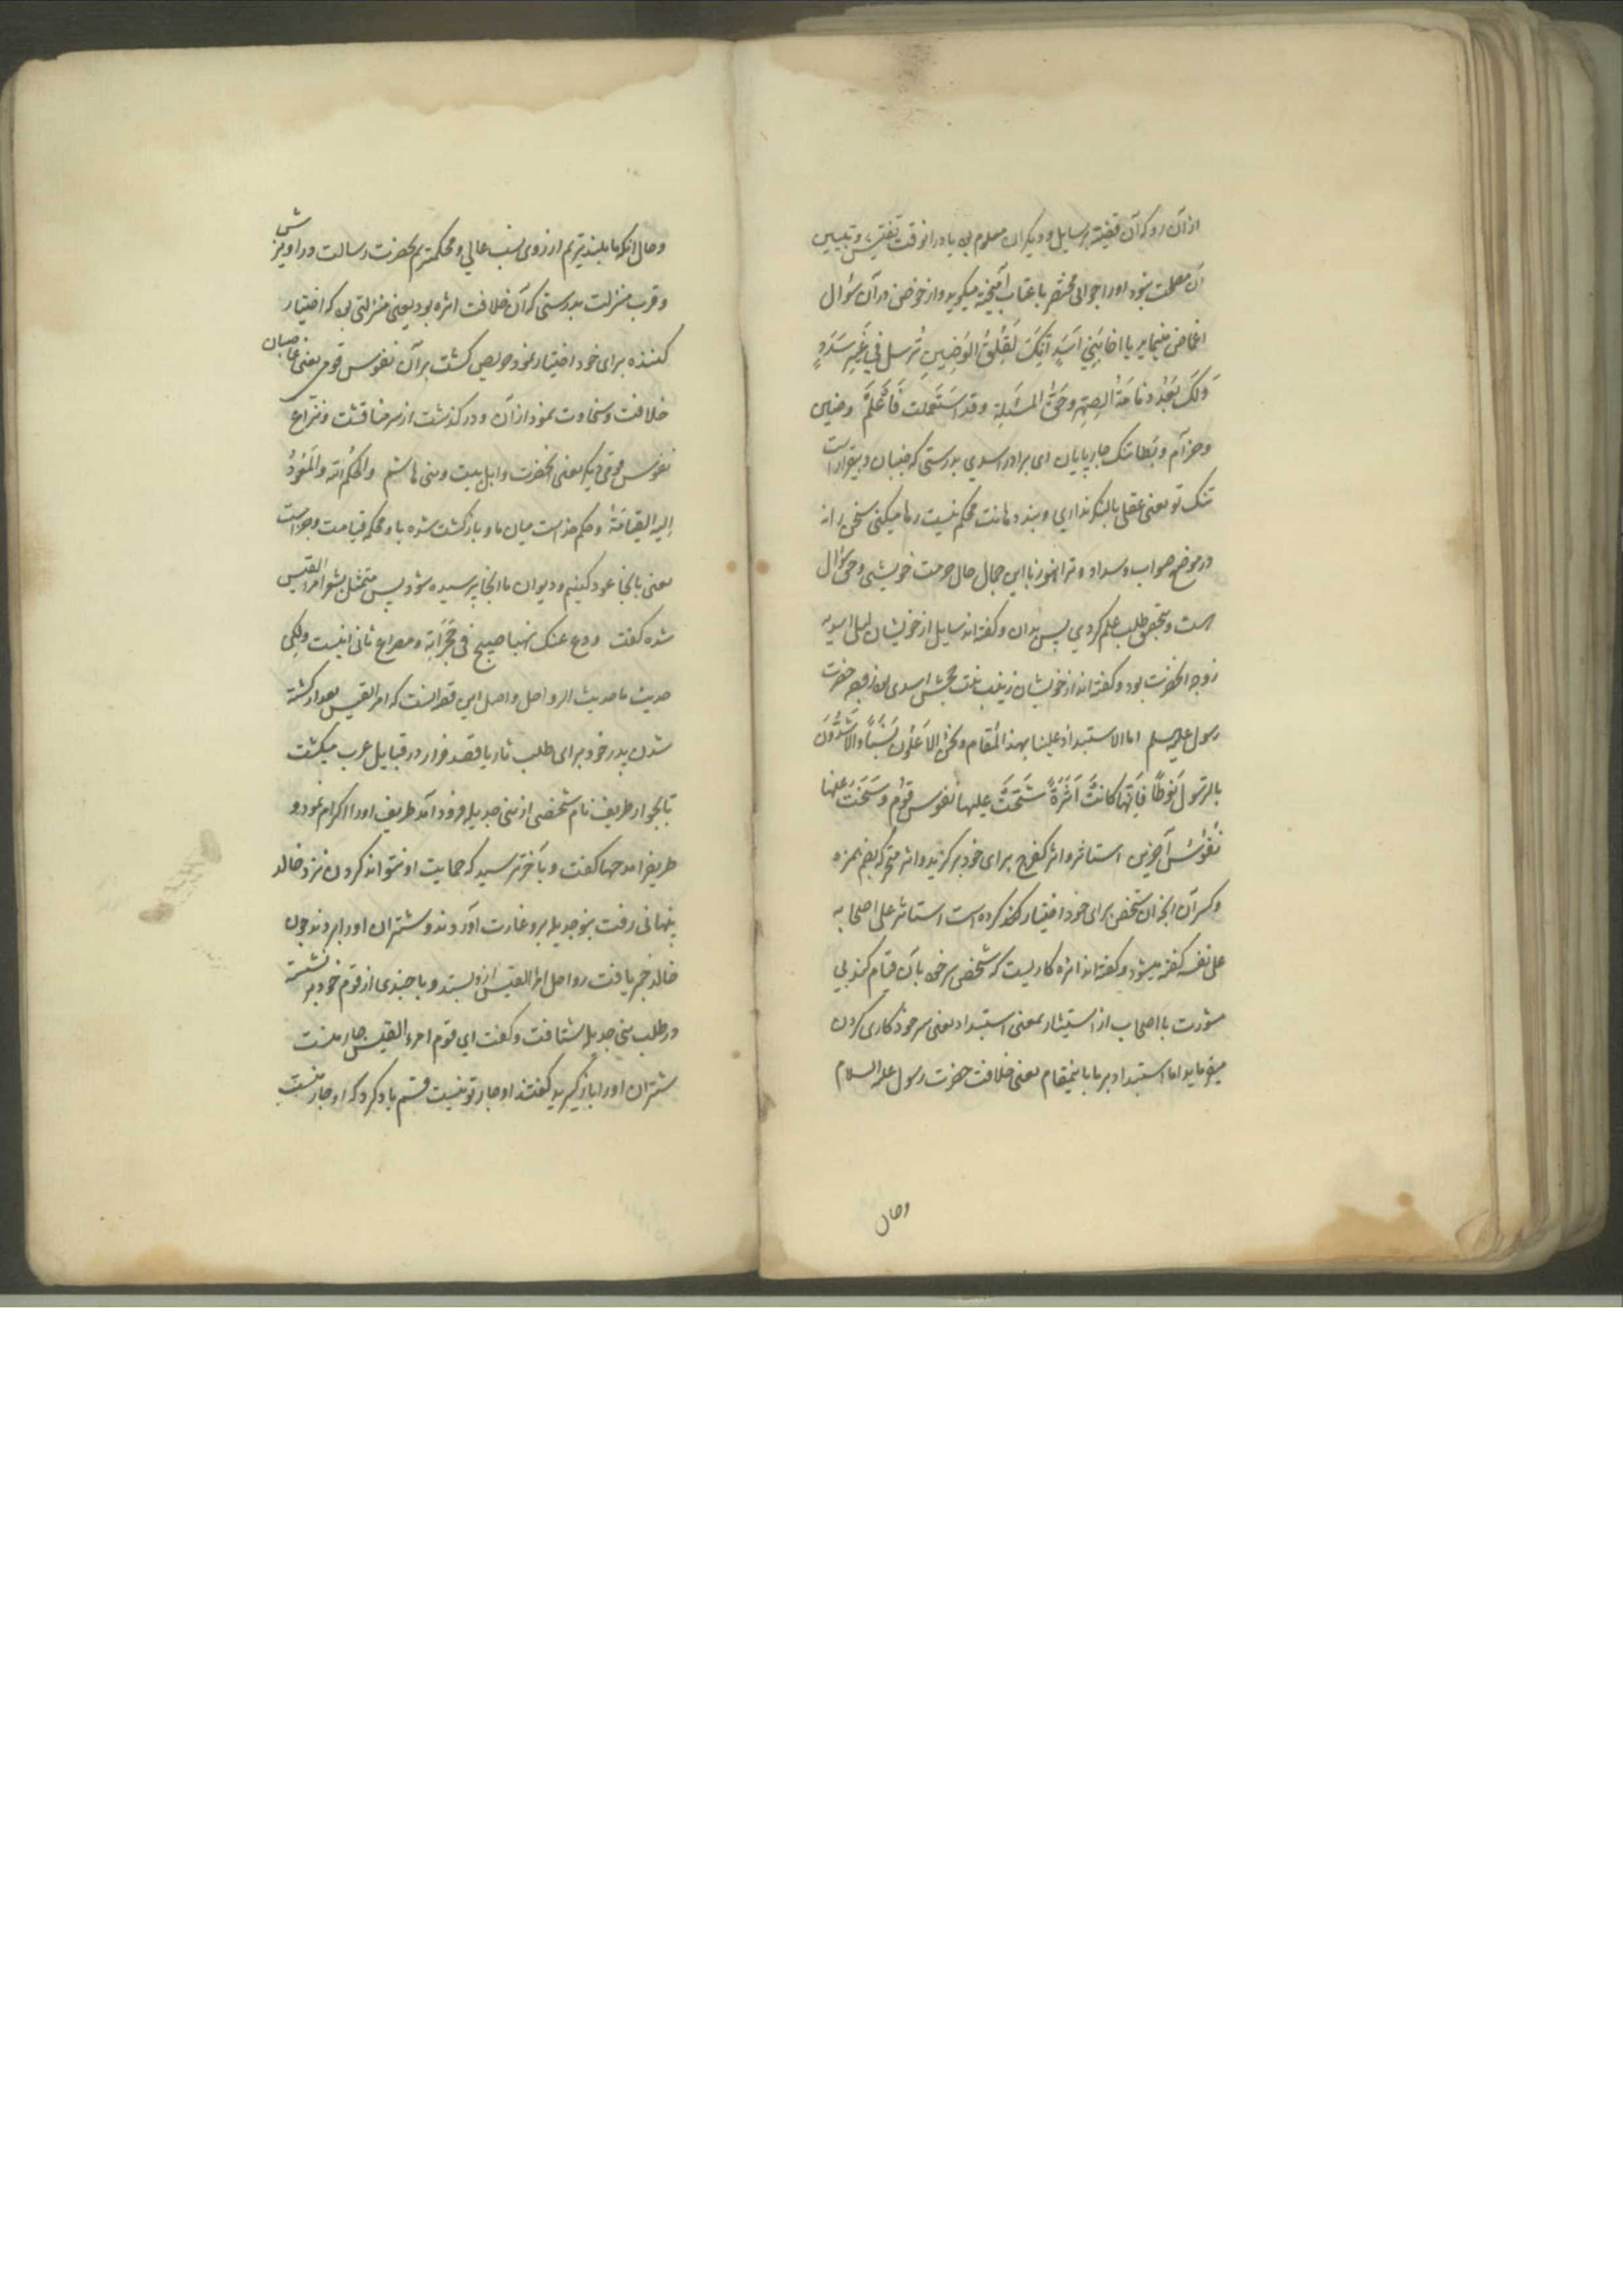 از آن رو که آن قضیه بر سایل و دیگران معلوم بود یا در انوقت تفتیش و تبیین
آن مصلحت نبود او را جوابی مختصر با عتاب آمیخته میگوید و از خوض در آن سؤال
اغماض مینماید یا اخا بنی اسد انک لقلق الوضین ترسل فی غیر سدد
ولک بعد ذمامة الصهر وحق المسئلة وقد استعلمت فاعلم وضین
و حزام و بطا تنک چارپایان ای برادر اسدی بدرستی که جنبان و بیقرار است
تنک تو یعنی عقلی بالنکر نداری و بند دهانت محکم نیست رها میکنی سخن را نه
در موضع صواب و سداد و ترا هنوز با این جمال حال حرمت خویشی و حق سؤال
است و بتحقیق طلب علم کردی پس بدان و گفته‌اند سایل از خویشان لیلی اسدیه
زوجه انحضرت بود و گفته‌اند از خویشان زینب بنت جحش اسدی بود زوجه حضرت
رسول علیه السلم اما الاستبداد علینا بهذا المقام ونحن الاعلون نسبا والاشدون
بالرسول نوطا فانها کانت اثرة شحت علیها نفوس قوم وسخت عنها
نفوس آخرین استاثر و اثر کفرح برای خود برگزید و اثره متحرکه بضم همزه
و کسر آن انچه ان شخص برای خود اختیار کرده است استاثر علی اصحابه
علی نفسه گفته میشود و گفته‌اند اثره کاریست که شخص سرخود بآن قیام کند بی
مشورت با اصحاب از استیثار بمعنی استبداد یعنی سرخود کاری کردن
میفرماید اما استبداد بر ما باینمقام یعنی خلافت حضرت رسول علیه السلام
وحال
و حال انکه ما بلندتریم از روی نسب عالی و محکمتریم بحضرت رسالت در اویزش
و قرب منزلت بدرستی که آن خلافت اثره بود یعنی منزلتی بود که اختیار
کننده برای خود اختیار نمود حریص گشت بر آن نفوس قومی یعنی غاصبان
خلافت و سخاوت نمود از آن و درگذشت از سر مناقشت و نزاع
نفوس قومی دیگر یعنی انحضرت و اهل بیت و بنی هاشم والحکم الله والمعود
الیه القیامة و حکم خداست میان ما و بازگشت شده باو محکمه قیامت و جزاست
یعنی بانجا عود کنیم و دیوان ما انجا پرسیده شود پس متمثل بشعر امرؤ القیس
شده گفت ودع عنک نهبا صیح فی حجراته و مصراع ثانی اینست ولکن
حدیث ما حدیث الرواحل و اصل این قصه انست که امرؤ القیس بعد از کشته
شدن پدر خود برای طلب ثار یا قصد فرار در قبایل عرب میگشت
تا بجوار طریف نام شخصی از بنی جدیله فرود آمد طریف او را اکرام نمود و
طریف را مدحها گفت و بآخر ترسید که حمایت او نتواند کردن نزد خالد
پنهانی رفت بنو جدیله برو غارت آوردند و شتران او را بردند چون
خالد خبر یافت رواحل امرؤ القیس ازو بستد و با چندی از قوم خود برنشسته
در طلب بنی جدیله شتافت و گفت ای قوم امرء القیس جار منست
شتران او را باز گیرید گفتند او جار تو نیست قسم یاد کرد که او جار منست